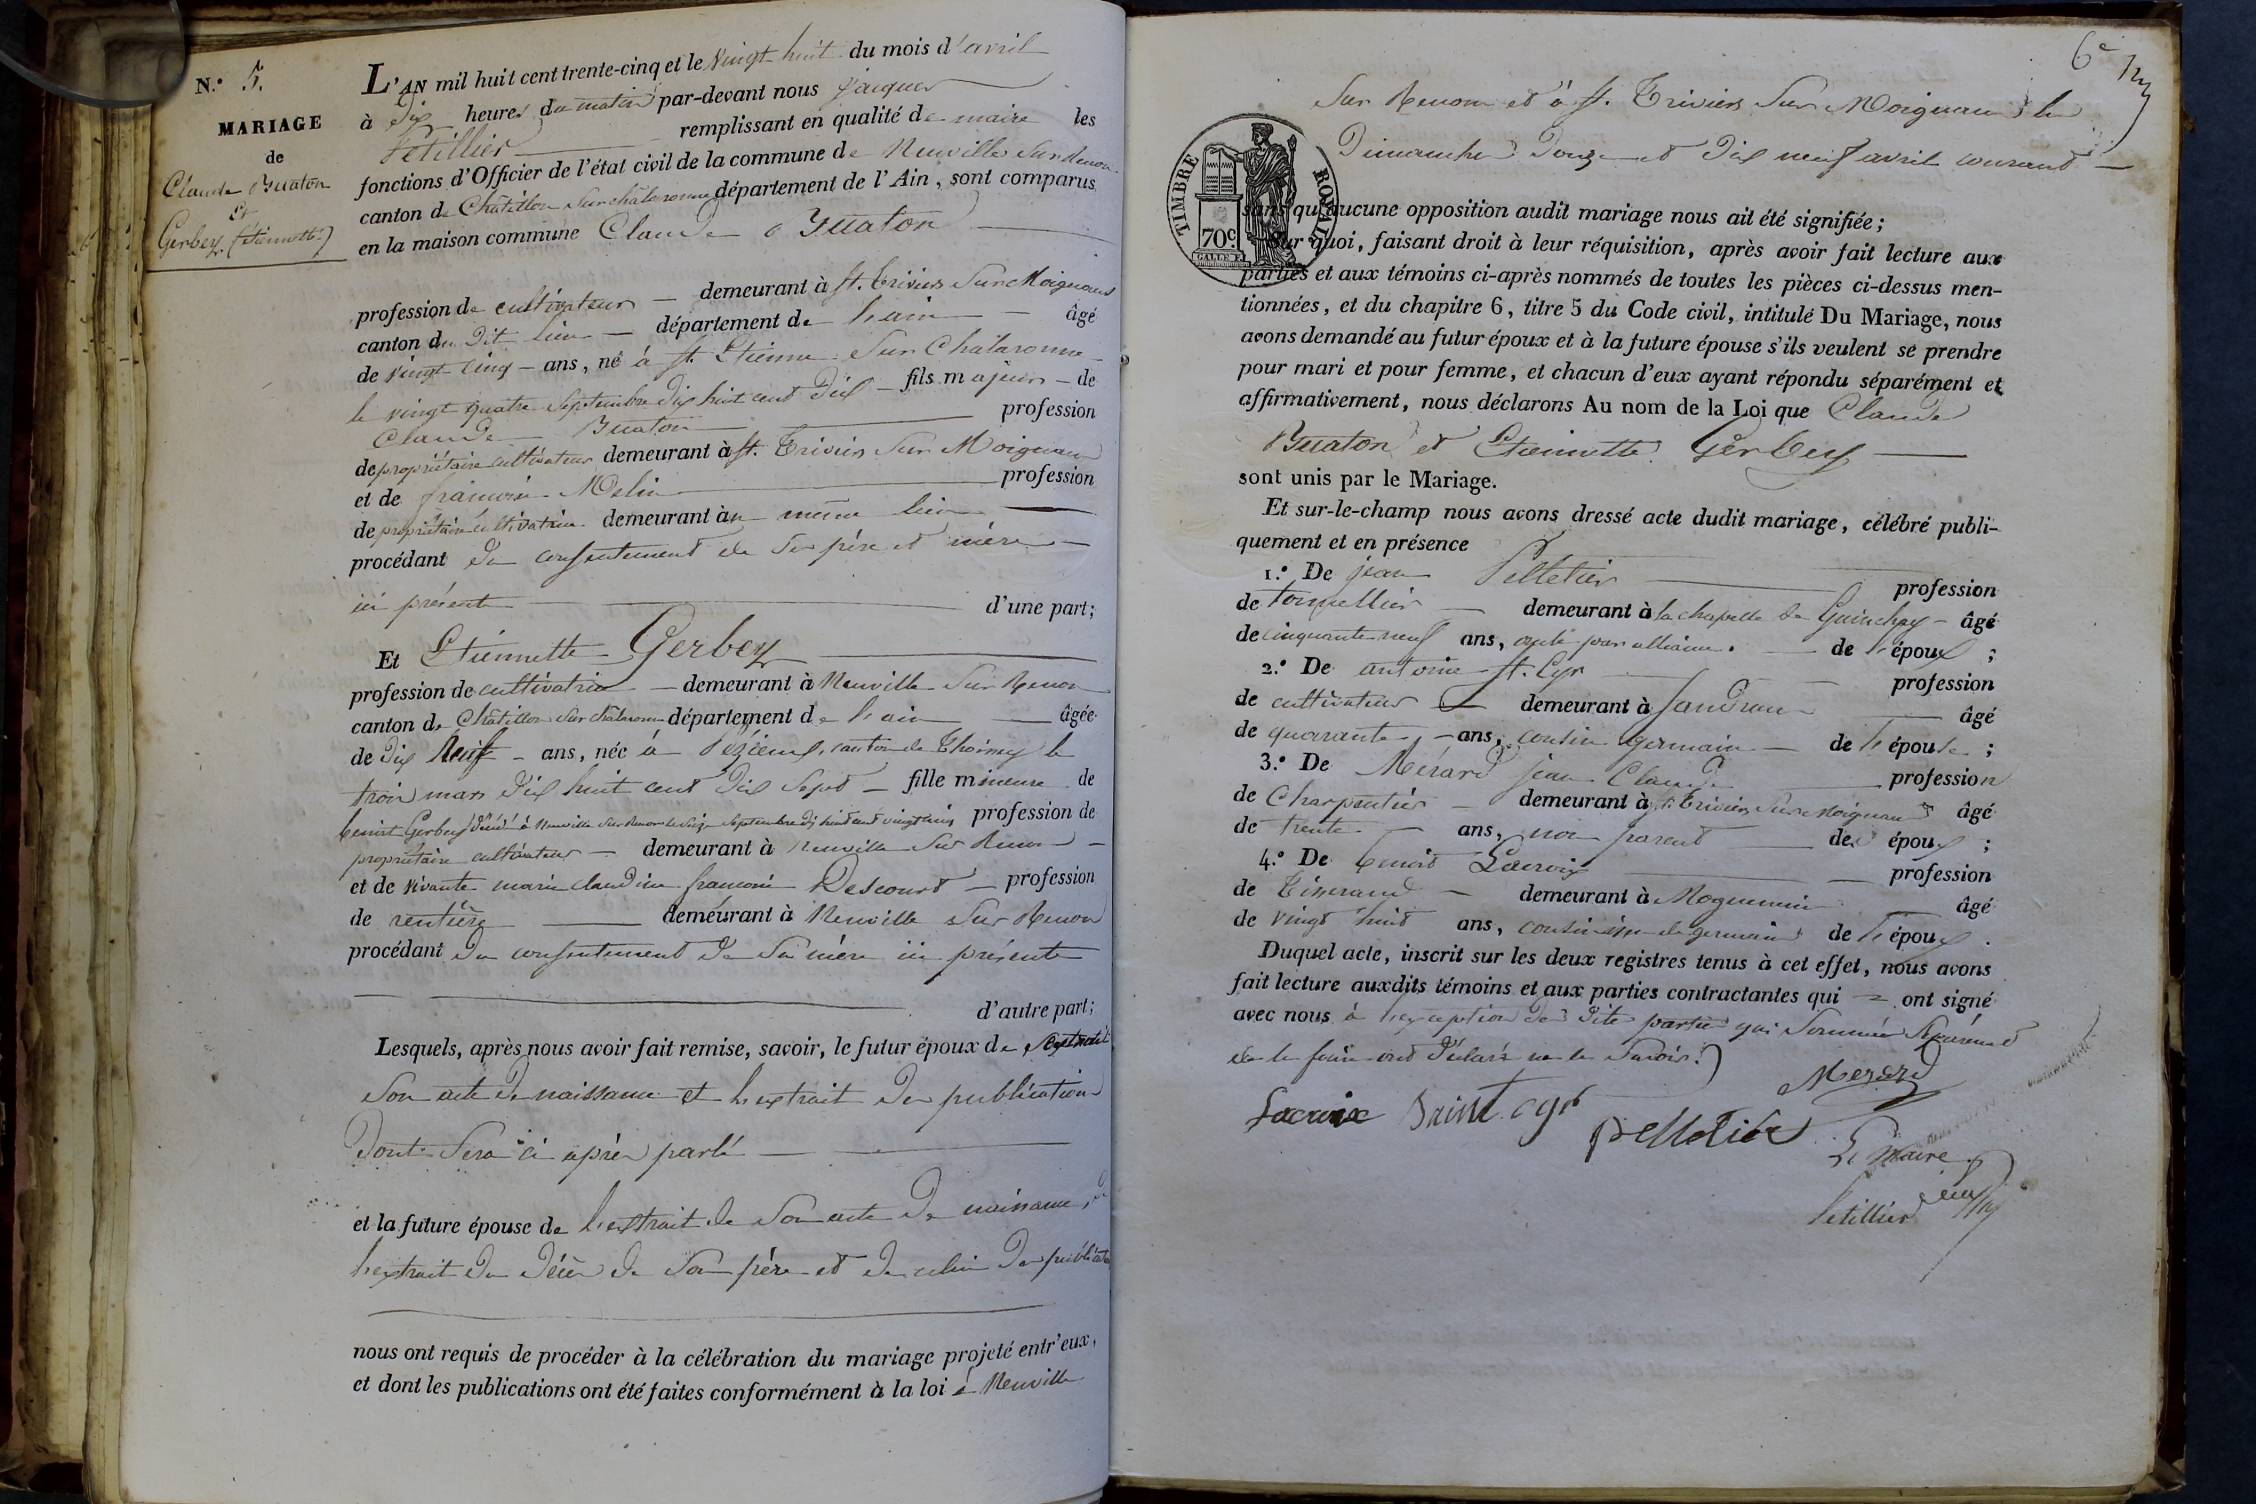 N.° 5.
MARIAGE
de
Claude Buaton
et
Gerbey (Etiennette)
L'AN mil huit cent trente-cinq et le vingt huit du mois d'avril
à dix heures du matin par-devant nous Jacques
Petillier remplissant en qualité de maire les
fonctions d'Officier de l'état civil de la commune de Neuville Sur Renon
canton de Châtillon Sur chalaronne département de l'Ain, sont comparus
en la maison commune Claude Buaton
profession de cultivateur demeurant à St. Triviers Sur Moignans
canton du dit lieu département de l'ain âgé
de vingt cinq ans, né à St. Etienne Sur Chalaronne
le vingt quatre Septembre dix huit cent dix fils majeur de
Claude Buaton profession
de propriétaire cultivateur demeurant à St. Triviers Sur Moignans
et de françoise Melin profession
de propriétaire cultivatrice demeurant au même lieu
procédant du consentement de Ses père et mère
ici présents d'une part;
Et Etiennette Gerbey
profession de cultivatrice demeurant à Neuville Sur Renon
canton de Châtillon Sur chalaronne département de l'ain âgée
de dix Neuf ans, née à canton de Thoissey le
trois mars dix huit cent dix Sept fille mineure de
benoist Gerbey décédé à Neuville Sur Renon le Seize Septembre dix huit cent vingt profession de
propriétaire cultivateur demeurant à Neuville Sur Renon
et de vivante marie claudine françoise Descourt profession
de rentière demeurant à Neuville Sur Renon
procédant du consentement de Sa mère ici présente
d'autre part;
Lesquels, après nous avoir fait remise, savoir, le futur époux de l'extrait de
Son acte de naissance et l'extrait des publications
dont Sera ci après parlé
et la future épouse de l'extrait de Son acte de naissance, de
l'extrait du décès de Son père et de celui des publications
nous ont requis de procéder à la célébration du mariage projeté entr'eux,
et dont les publications ont été faites conformément à la loi à Neuville
6e
Sur Renon et à St. Triviers Sur Moignans les
Dimanches Douze et Dix neuf avril courant
TIMBRE ROYAL
70c.
sans qu'aucune opposition audit mariage nous ait été signifiée;
Sur quoi, faisant droit à leur réquisition, après avoir fait lecture aux
parties et aux témoins ci-après nommés de toutes les pièces ci-dessus men-
tionnées, et du chapitre 6, titre 5 du Code civil, intitulé Du Mariage, nous
avons demandé au futur époux et à la future épouse s'ils veulent se prendre
pour mari et pour femme, et chacun d'eux ayant répondu séparément et
affirmativement, nous déclarons Au nom de la Loi que Claude
Buaton et Etiennette Gerbey
sont unis par le Mariage.
Et sur-le-champ nous avons dressé acte dudit mariage, célébré publi-
quement et en présence
1.° De jean Pelletier profession
de tonnellier demeurant à la chapelle de Guinchay âgé
de cinquante neuf ans, par alliance de l'époux ;
2.° De antoine St. Cyr profession
de cultivateur demeurant à Sandrans âgé
de quarante ans, cousin germain de l'épouse ;
3.° De Mérard jean Claude profession
de Charpentier demeurant à St. Triviers Sur Moignans âgé
de trente ans, non parent des époux ;
4.° De benoit Lacroix profession
de Tisserand demeurant à Mogneneins âgé
de vingt huit ans, cousin issu de germain de l'époux.
Duquel acte, inscrit sur les deux registres tenus à cet effet, nous avons
fait lecture auxdits témoins et aux parties contractantes qui ont signé
avec nous à l'exception des dites parties qui Sommées Séparément
de le faire ont déclaré ne le Savoir.
Merard
Lacroix Saint cyr Pelletier
Le Maire
Petillier